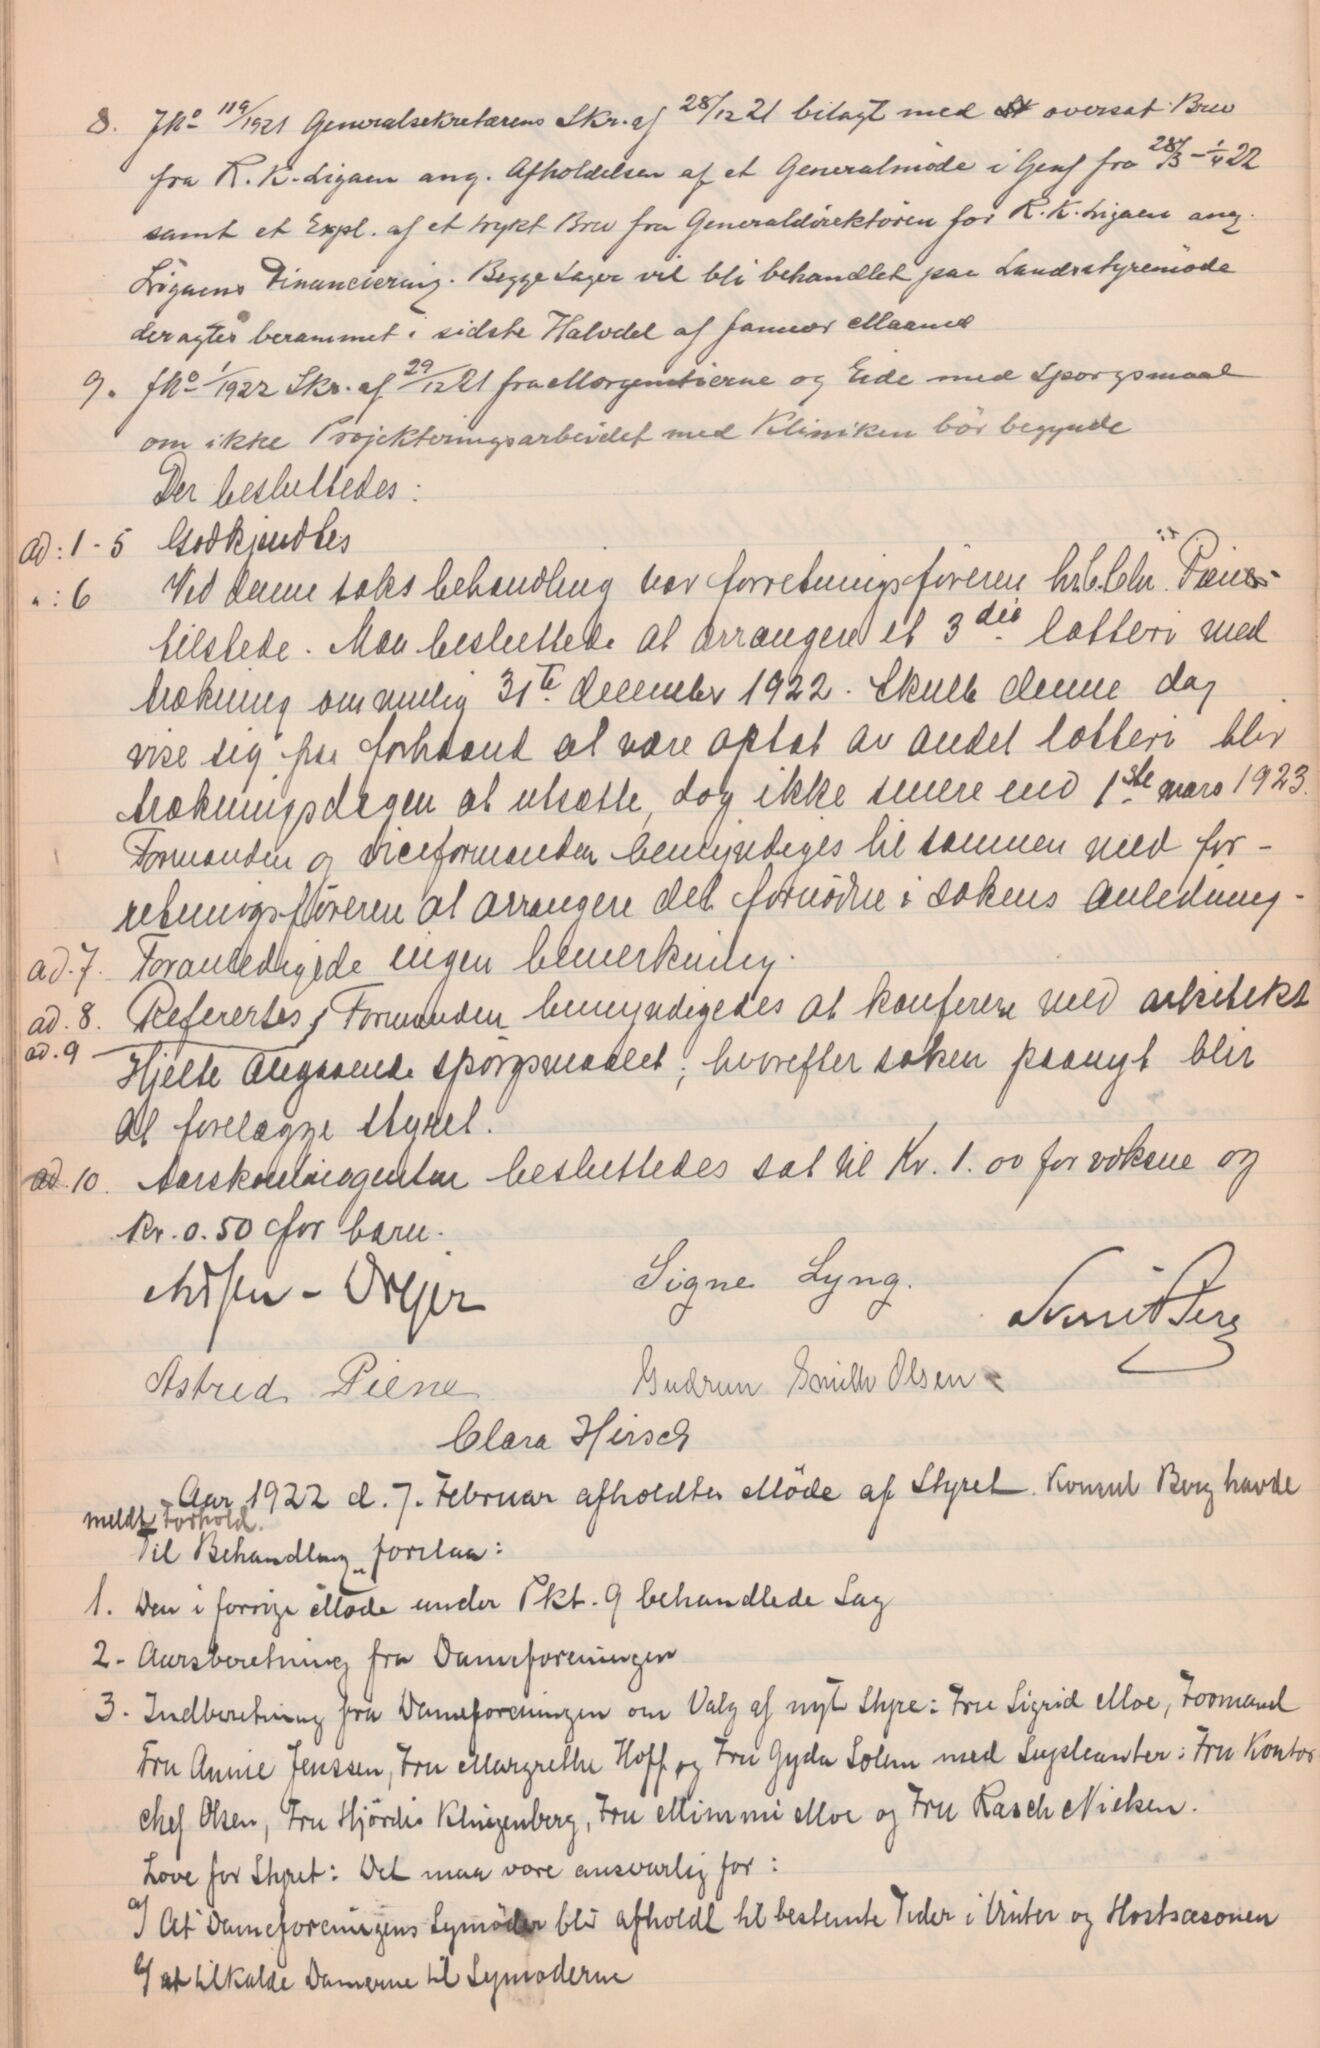 8. JNo 119/1921 Generalsekretærens Skr. af 28/12 21 bilagt med oversat Brev
fra R. K. Ligaen ang. Afholdelsen af et Generalmøde i Genf fra 28/3 - 1/4 22
samt et Expl. af et trykt Brev fra Generaldirektören for R. K. Ligaen ang.
Ligaens Financiering. Begge Sager vil bli behandlet paa Landsstyremöde
der agtes berammet i sidste Halvdel af Januar Maaned
9. JNo 1/1922 Skr. af 29/12 21 fra Morgenstierne og Eide med Spörgsmaal
om ikke Projekteringsarbeidet med Kliniken bör begynde
Der besluttedes:
ad: 1 - 5 Godkjendtes
" : 6 Ved denne saks behandling var forretningsföreren hr. Chr. Piene
tilstede. Man besluttede at arrangere et 3die lotteri med
trækning om mulig 31te december 1922. Skulle denne dag
vise sig paa forhaand at være optat av andet lotteri blir
trækningsdagen at utsætte, dog ikke senere end 1ste mars 1923.
Formanden og viceformanden bemyndiges til sammen med for-
retningsföreren at arrangere det fornödne i sakens anledning.
ad. 7. Foranledigede ingen bemerkning.
ad. 8. Referertes
ad. 9 Formanden bemyndigedes at konferere med arkitekt
Hjelte angaaende spörgsmaalet, hvorefter saken paanyt blir
at forelægge styret.
ad. 10. Aarskontingenten besluttedes sat til Kr. 1.00 for voksne og
kr. 0.50 for barn.
Signe Lyng.
Astrid Piene Gudrun Smith Olsen
Clara Hirsch
Aar 1922 d. 7. Februar afholdtes Möde af Styret. Konsul Berg havde
meldt Forhold.
Til Behandling forelaa:
1. Den i forrige Möde under Pkt. 9 behandlede Sag
2. Aarsberetning fra Dameforeningen
3. Indberetning fra Dameforeningen om Valg af nyt Styre: Fru Sigrid Moe, Formand
Fru Annie Jenssen, Fru Margrethe Hoff og Fru Gyda Solem med Supleanter: Fru Kontor
chef Olsen, Fru Hjördis Klingenberg, Fru Mimmi Moe og Fru Rasch Nielsen.
Love for Styret: Det maa være ansvarlig for:
a) At Dameforeningens Symöder bli afholdt til bestemte Tider i Vinter og Höstsæsonen
b) at tilkalde Damerne til Symöderne